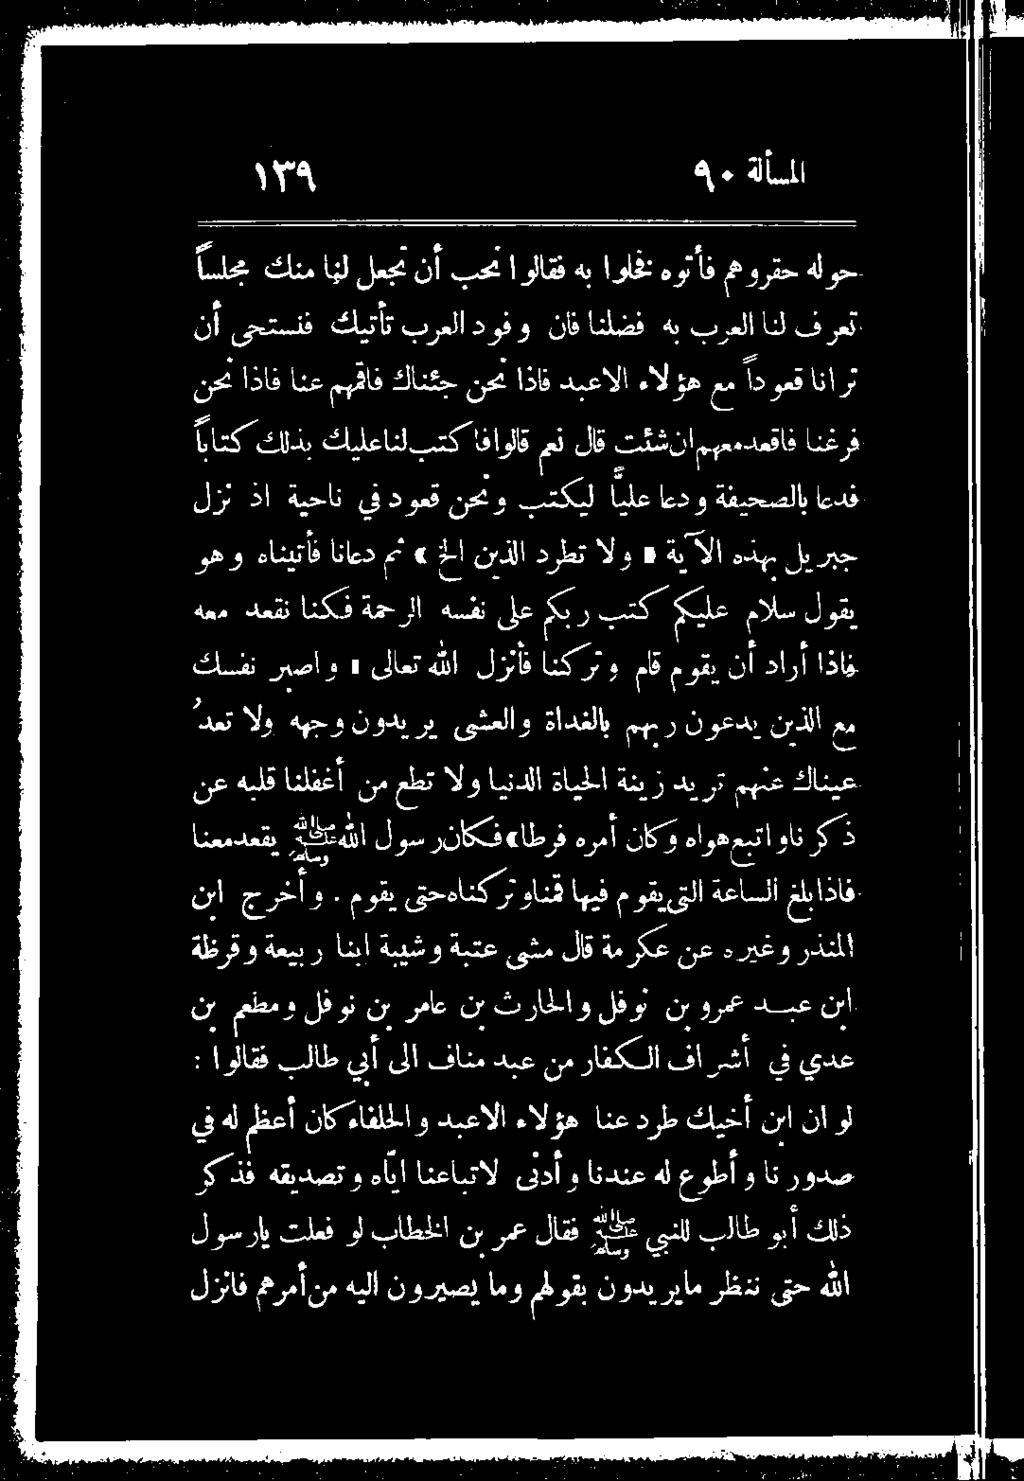 المسألة ٩٠ ١٣٩
حوله حقروهم فأتوه فخلوا به فقالوا نحب أن تجعل لنا منك مجلساً
تعرف لنا العرب به فضلنا فان وفود العرب تأتيك فنستحى أن
ترانا قعوداً مع هؤلاء الاعبد فاذا نحن جئناك فاقمهم عنا فاذا نحن
فرغنا فاقعدمعهم ان شئت قال نعم قالوا فاكتب لنا عليك بذلك كتاباً
فدعا بالصحيفة ودعا علياً ليكتب ونحن قعود في ناحية اذ نزل
جبريل بهذه الآية « ولا تطرد الذين الخ » ثم دعانا فأتيناه وهو
يقول سلام عليكم كتب ربكم على نفسه الرحمة فكنا نقعد معه
فاذا أراد أن يقوم قام وتركنا فأنزل الله تعالى « واصبر نفسك
مع الذين يدعون ربهم بالغداة والعشى يريدون وجهه ولا تعدُ
عيناك عنهم تريد زينة الحياة الدنيا ولا تطع من أغفلنا قلبه عن
ذكرنا واتبع هواه وكان أمره فرطا» فكان رسول الله ﷺ يقعدمعنا
فاذا بلغ الساعة التى يقوم فيها قمنا وتركناه حتى يقوم . وأخرج ابن
المنذر وغيره عن عكرمة قال مشى عتبة وشيبة ابنا ربيعة وقرظة
ابن عبد عمرو بن نوفل والحارث بن عامر بن نوفل ومطعم بن
عدي في أشراف الكفار من عبد مناف الى أبي طالب فقالوا :
لو ان ابن أخيك طرد عنا هؤلاء الاعبد والحلفاء كان أعظم له في
صدورنا وأطوع له عندنا وأدنى لاتباعنا اياه وتصديقه فذكر
ذلك أبو طالب للنبي ﷺ فقال عمر بن الخطاب لو فعلت يارسول
الله حتى ننظر مايريدون بقولهم وما يصيرون اليه من أمرهم فانزل